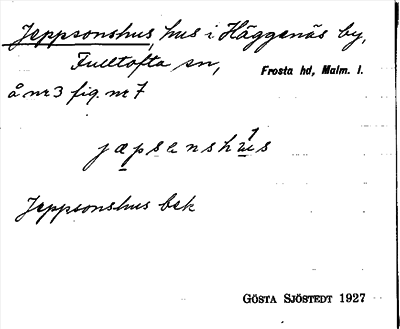 Jeppsonshus, hus i Häggenäs by,
Fulltofta sn, Frosta hd, Malm. l.
å nr 3 fig. nr 7
jæpsenshus
Jeppsonshus bsk
GÖSTA SJÖSTEDT 1927